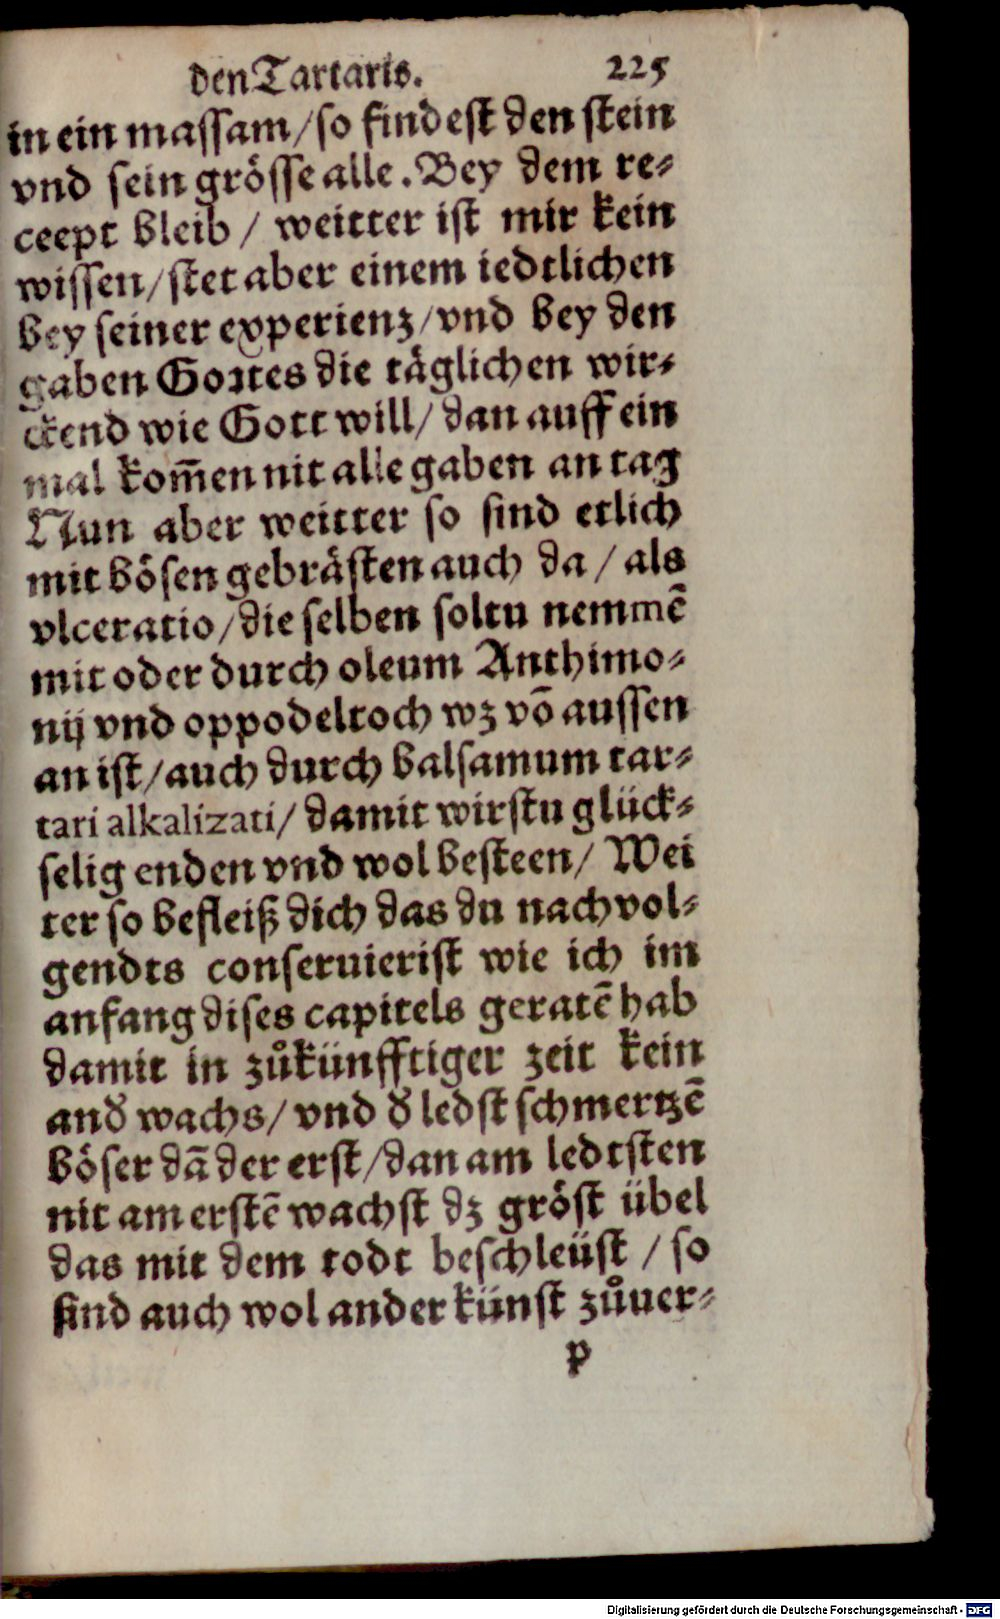 den Tartaris. 225
in ein massam/so findest den stein
vnd sein grösse alle. Bey dem re⸗
cept bleib / weitter ist mir kein
wissen/stet aber einem iedtlichen
bey seiner experienz/vnd bey den
gaben Gottes die täglichen wir⸗
ckend wie Gott will/ dan auff ein
mal kom̄en nit alle gaben an tag
Nun aber weitter so sind etlich
mit bösen gebrästen auch da / als
vlceratio/die selben soltu nemmē
mit oder durch oleum Anthimo⸗
nij vnd oppodeltoch wz vō aussen
an ist/auch durch balsamum tar⸗
tari alkalizati/ damit wirstu glück⸗
selig enden vnd wol besteen/ Wei
ter so befleiß dich das du nachvol⸗
gendts conseruierist wie ich im
anfang dises capitels geratē hab
damit in zůkünfftiger zeit kein
and̕ wachs/ vnd d̕ ledst schmertzē
böser dā der erst/dan am ledtsten
nit am erstē wachst dz gröst übel
das mit dem todt beschleüst / so
sind auch wol ander künst zůuer⸗
p
Digitalisierung gefördert durch die Deutsche Forschungsgemeinschaft - DFG